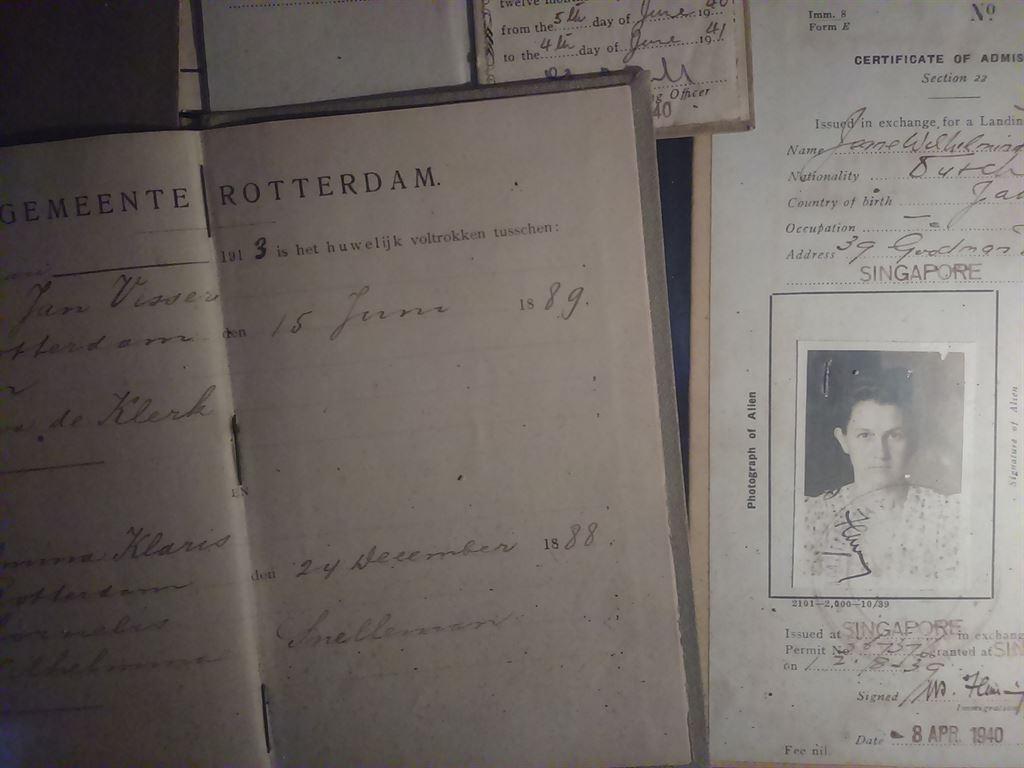 twelve mont
from the 5th day of June 1940
to the 4th day of June 1941
Officer
40
GEMEENTE ROTTERDAM.
1913 is het huwelijk voltrokken tusschen:
Jan Visser
otterdam den 15 Juni 1889.
n
a de Klerk
EN
mma Klaris
otterdam den 24 December 1888.
ornelis Snelleman
lhelmina
Imm. 8
Form E
Nº
CERTIFICATE OF ADMIS
Section 22
Issued in exchange for a Landin
Name
Nationality Dutch
Country of birth Ja
Occupation —
Address 39 Goodman
SINGAPORE
Photograph of Alien
Signature of Alien
2101—2,000—10/39
Issued at SINGAPORE in exchang
Permit No granted at SIN
on
Signed
Immigration
Date - 8 APR. 1940
Fee nil.